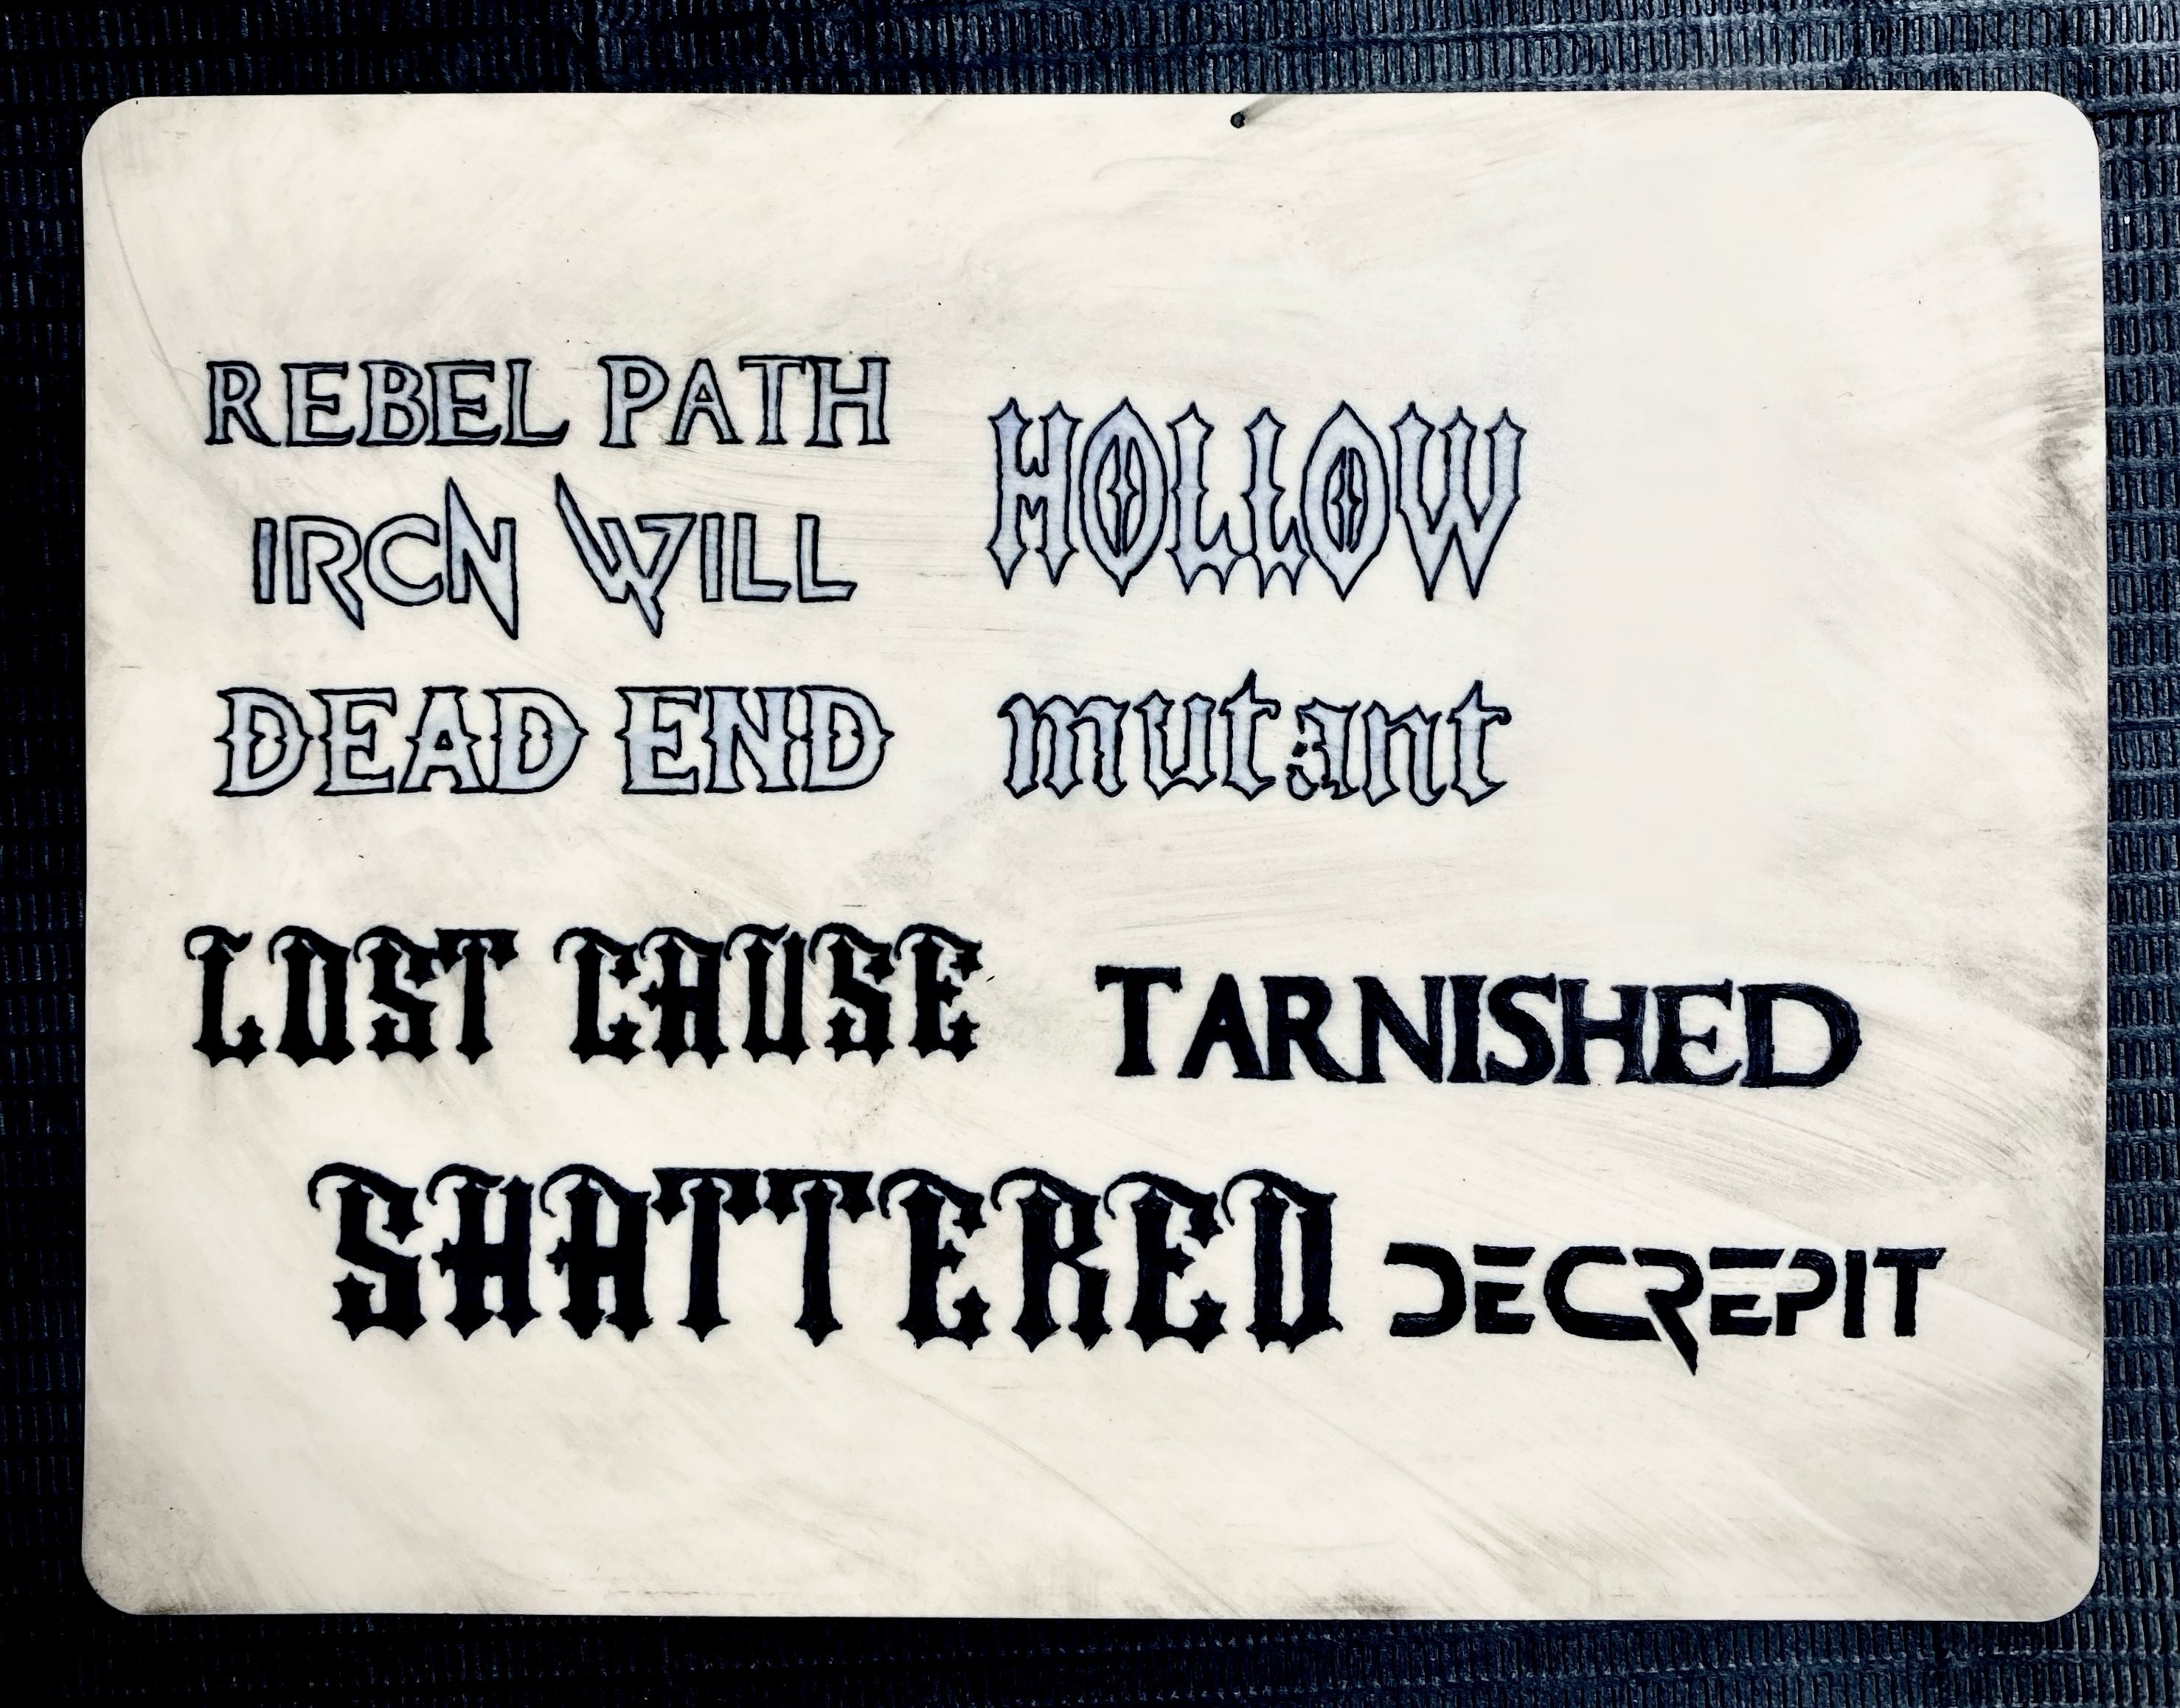 REBEL PATH
HOLLOW
IRCN WILL
DEAD END
mutant
LOST CAUSE
TARNISHED
SHATTERED
DECREPIT